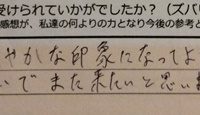 受けられていかがでしたか？（ズバリ
感想が、私達の何よりの力となり今後の参考と
やかな印象になってよ
いでまた来たいと思いま